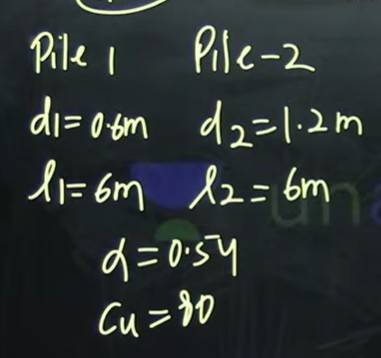 Pile 1 Pile-2
d1=0.6m d2=1.2m
l1=6m l2=6m
α=0.54
Cu=80